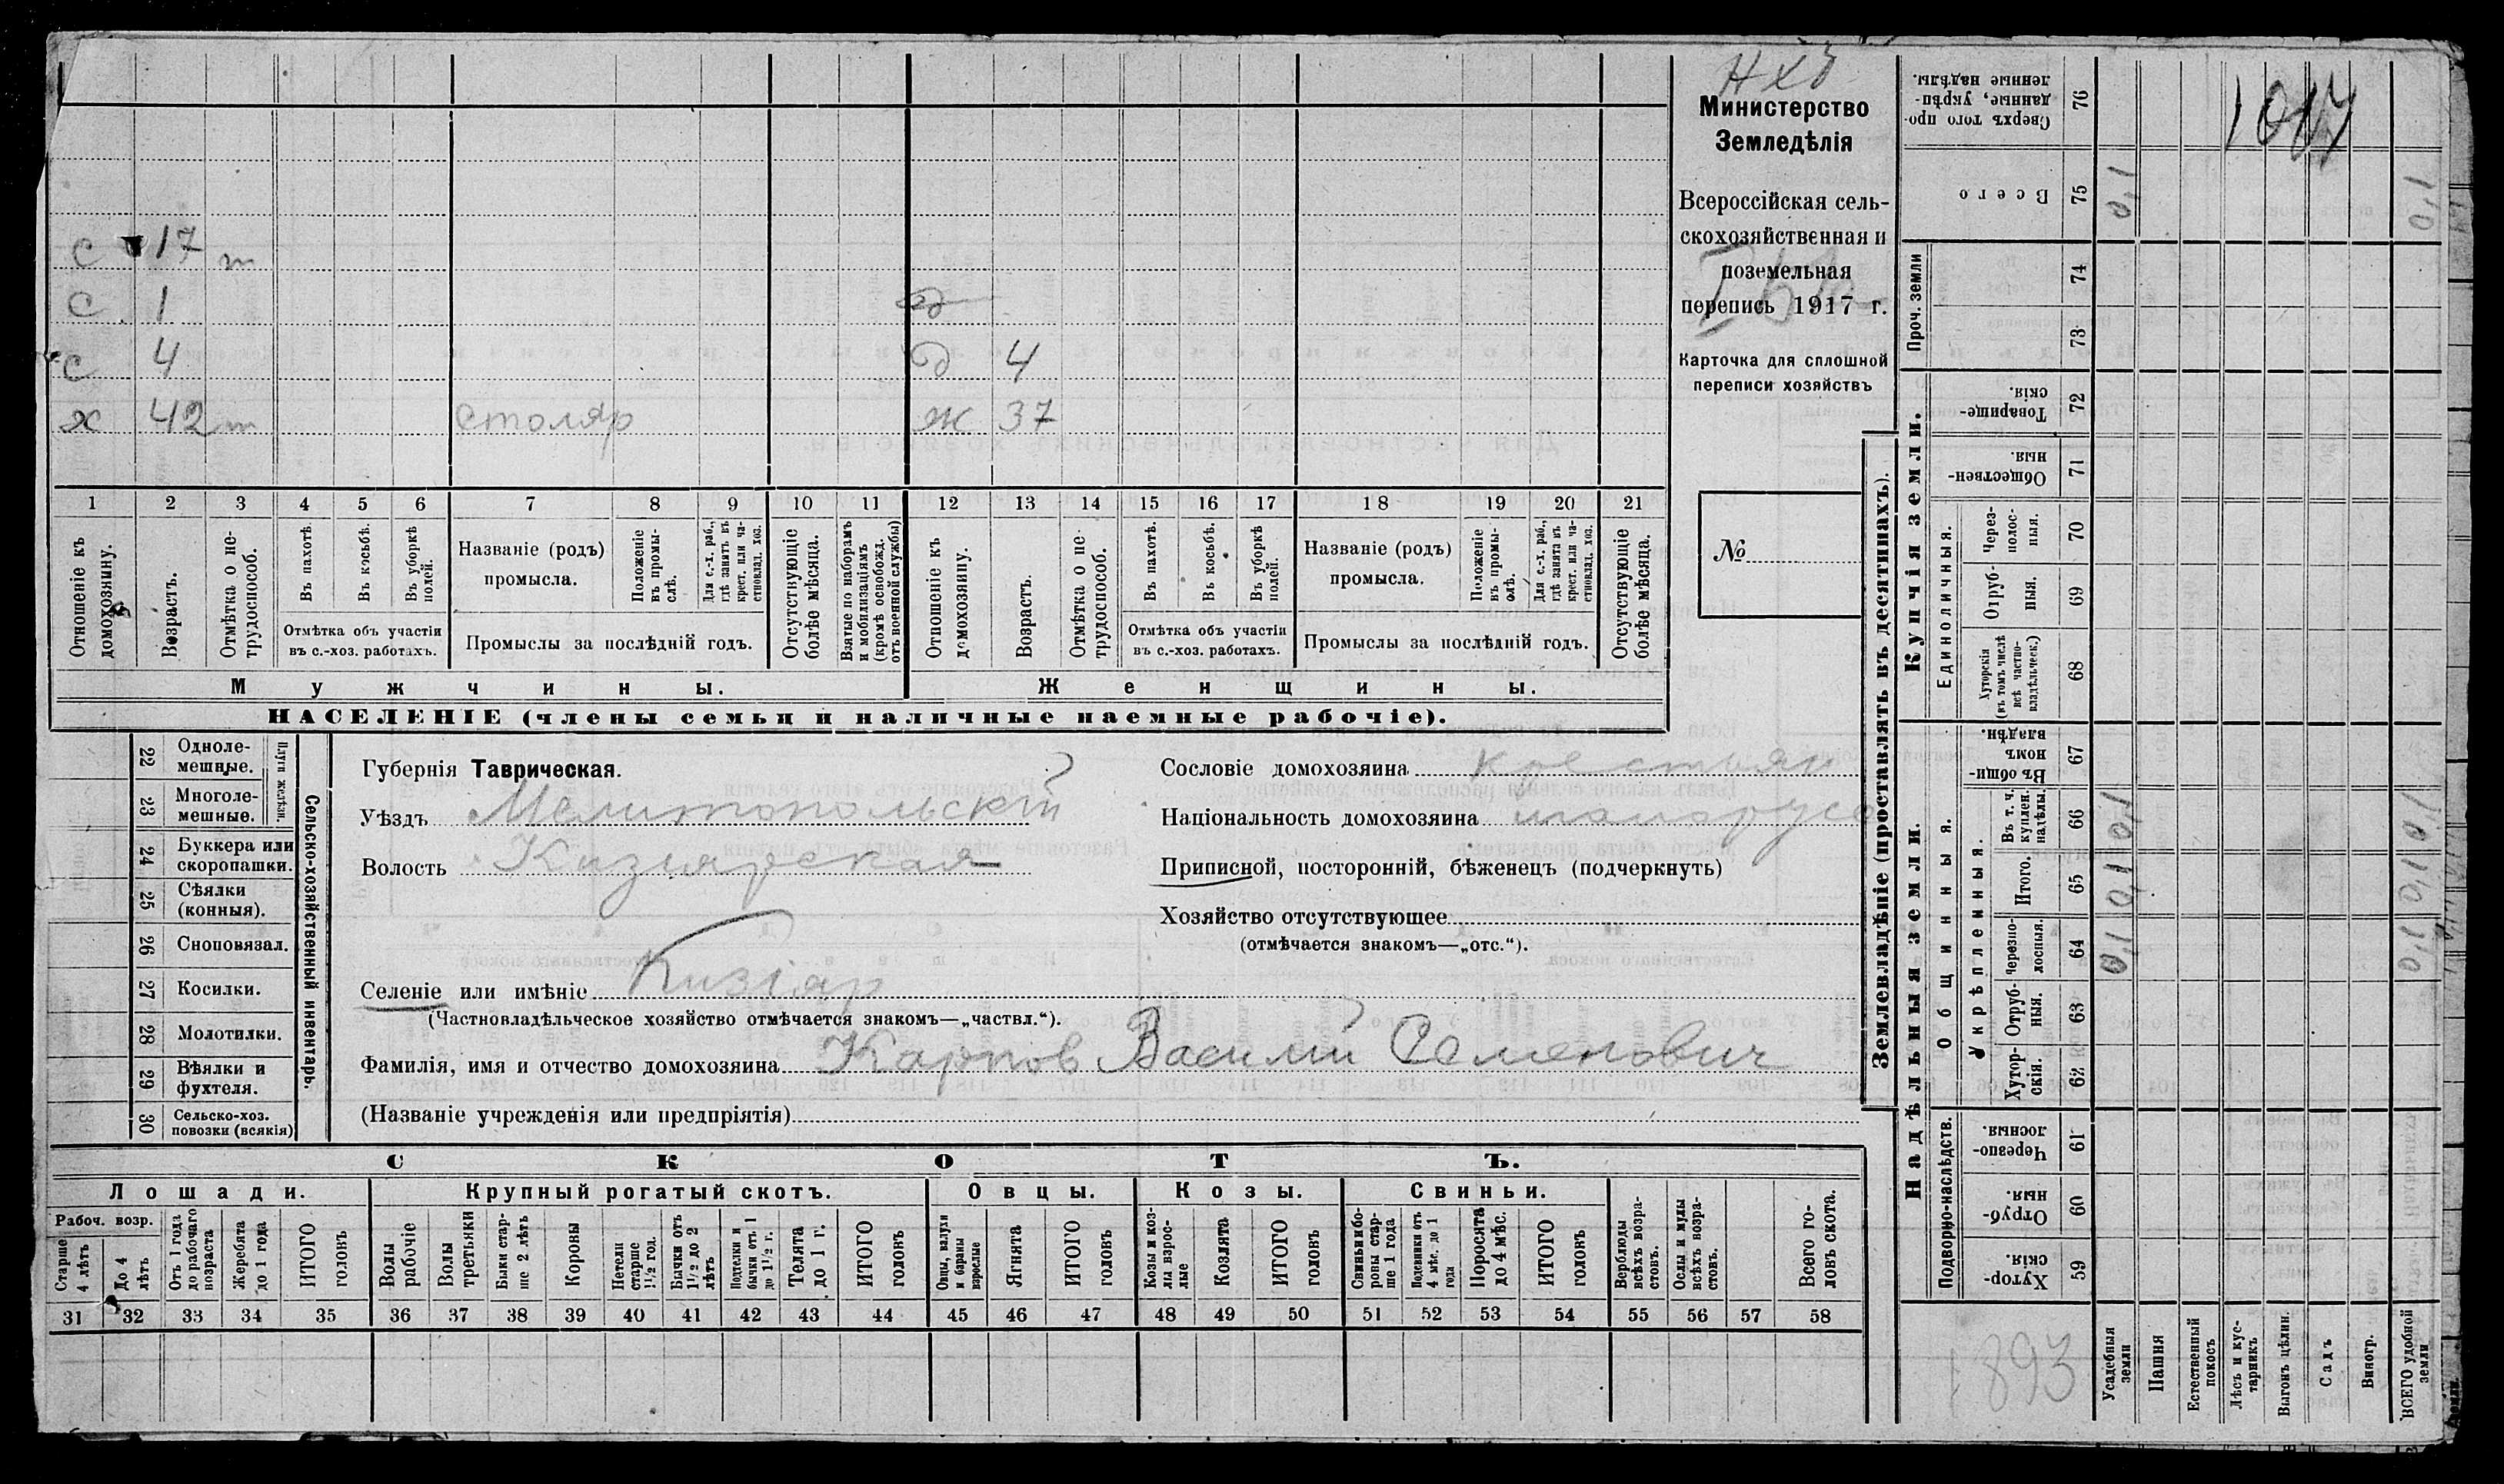 Министерство
Земледѣлія
Всероссійская сель-
скохозяйственная и
поземельная
перепись 1917 г.
Карточка для сплошной
переписи хозяйствъ
№
с 17 т
с 1 д
с 4 д 4
х 42 т столяр ж 37
1 2 3 4 5 6 7 8 9 10 11 12 13 14 15 16 17 18 19 20 21
Отношеніе къ домохозяину.
Возрастъ.
Отмѣтка о не-трудоспособ.
Въ пахотѣ.
Въ косьбѣ.
Въ уборкѣ полей.
Отмѣтка объ участіи
въ с.-хоз. работахъ.
Названіе (родъ)
промысла.
Положеніе въ промы-слѣ.
Для с.-х. раб., гдѣ занятъ въ крест. или ча-стновлад. хоз.
Промыслы за послѣдній годъ.
Отсутствующіе болѣе мѣсяца.
Взятые по наборамъ и мобилизаціямъ (кромѣ освобожд. отъ военной службы)
Отношеніе къ домохозяину.
Возрастъ.
Отмѣтка о не-трудоспособ.
Въ пахотѣ.
Въ косьбѣ.
Въ уборкѣ полей.
Отмѣтка объ участіи
въ с.-хоз. работахъ.
Названіе (родъ)
промысла.
Положеніе въ промы-слѣ.
Для с.-х. раб., гдѣ занята въ крест. или ча-стновлад. хоз.
Промыслы за послѣдній годъ.
Отсутствующіе болѣе мѣсяца.
Мужчины. Женщины.
НАСЕЛЕНІЕ (члены семьи и наличные наемные рабочіе).
Сельско-хозяйственный инвентарь.
Плуги желѣзн.
22 Одноле-мешные.
23 Многоле-мешные.
24 Буккера или скоропашки.
25 Сѣялки (конныя).
26 Сноповязал.
27 Косилки.
28 Молотилки.
29 Вѣялки и фухтеля.
30 Сельско-хоз. повозки (всякія)
Губернія Таврическая.
Уѣздъ Мелитопольскій
Волость Кизіярская
Селеніе или имѣніе Кизіяр
(Частновладѣльческое хозяйство отмѣчается знакомъ—„частвл.“).
Фамилія, имя и отчество домохозяина Карпов Василій Семенович
(Названіе учрежденія или предпріятія)
Сословіе домохозяина крестьян
Національность домохозяина малорусс
Приписной, посторонній, бѣженецъ (подчеркнуть)
Хозяйство отсутствующее
(отмѣчается знакомъ—„отс.“).
СКОТЪ.
Лошади. Крупный рогатый скотъ. Овцы. Козы. Свиньи.
Рабоч. возр.
Старше 4 лѣтъ
До 4 лѣтъ
Отъ 1 года до рабочаго возраста
Жеребята до 1 года
ИТОГО головъ
Волы рабочіе
Волы третьяки
Быки стар-ше 2 лѣтъ
Коровы
Нетели старше 1½ год.
Бычки отъ 1½ до 2 лѣтъ
Подтелки и бычки отъ 1 до 1½ г.
Телята до 1 г.
ИТОГО головъ
Овцы, валухи и бараны взрослые
Ягнята
ИТОГО головъ
Козы и коз-лы взрос-лые
Козлята
ИТОГО головъ
Свиньи и бо-ровы стар-ше 1 года
Подсвинки отъ 4 мѣс. до 1 года
Поросята до 4 мѣс.
ИТОГО головъ
Верблюды всѣхъ возра-стовъ.
Ослы и мулы всѣхъ возра-стовъ.
Всего го-ловъ скота.
31 32 33 34 35 36 37 38 39 40 41 42 43 44 45 46 47 48 49 50 51 52 53 54 55 56 57 58
Землевладѣніе (проставлять въ десятинахъ).
Купчія земли.
Надѣльныя земли.
Сверхъ того про-данные, укрѣп-ленные надѣлы. 76
Всего 75 1,0
Проч. земли 74 73
Товарище-скія 72
Обществен-ныя 71
Единоличныя.
Через-полос-ныя. 70
Отруб-ныя. 69
Хуторскія (въ томъ числѣ всѣ частно-владѣльческ.) 68
Общинныя.
Въ общин-номъ владѣн. 67
Укрѣпленныя.
Въ т. ч. куплен. надѣлы. 66
Итого. 65
Черезпо-лосныя. 64
Отруб-ныя. 63
Хутор-скія. 62
Подворно-наслѣдств.
Черезпо-лосныя. 61
Отруб-ныя. 60
Хутор-скія. 59
Усадебныя земли
Пашня
Естественный покосъ
Лѣсъ и кус-тарникъ
Выгонъ цѣлин.
Садъ
Виногр.
ВСЕГО удобной земли
1893